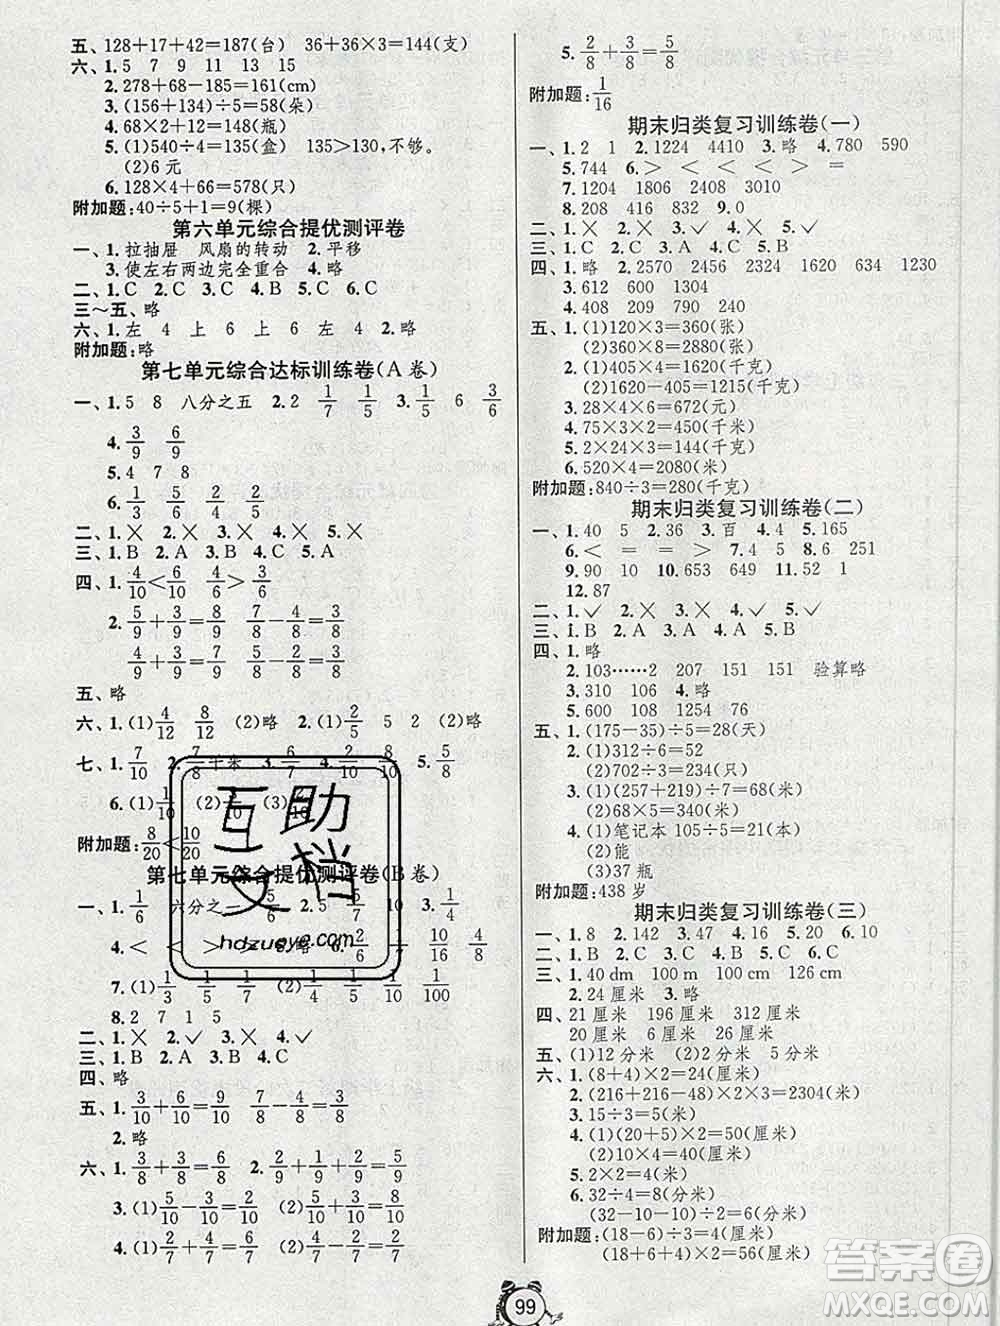 五、128+17+42=187(台) 36+36×3=144(支)
六、1. 5 7 9 11 13 15
2. 278+68-185=161(cm)
3. (156+134)÷5=58(朵)
4. 68×2+12=148(瓶)
5. (1)540÷4=135(盒) 135>130,不够。
(2)6 元
6. 128×4+66=578(只)
附加题:40÷5+1=9(棵)
第六单元综合提优测评卷
一、1. 拉抽屉 风扇的转动 2. 平移
3. 使左右两边完全重合 4. 略
二、1. C 2. C 3. C 4. B 5. C 6. C
三~五、略
六、1. 左 4 上 6 上 6 左 4 2. 略
附加题:略
第七单元综合达标训练卷(A 卷)
一、1. 5 8 八分之五 2. 2 1/7 1/5 3. 1/5 6 3/6
4. 3/9 6/9
5. 4 7 8
6. 1/3 1/5 5/6 2/6 2/4 1/4
二、1. × 2. × 3. × 4. √ 5. ×
三、1. B 2. A 3. B 4. B 5. A
四、1. 4/10<6/10 4/6>3/6
2. 5/9+3/9=8/9 7/8-5/8=2/8
4/9+5/9=9/9 5/8-2/8=3/8
五、略
六、1. (1)4/12 8/12 (2)略 2. (1)2/5 5 2 (2)略
七、1. 7/10 2. 7/8 千米 3. 6/7 4. 2/10 8/10 5. 5/8
6. (1)1/10 (2) (3)
附加题:8/20<10/20
第七单元综合提优测评卷(B 卷)
一、1. 1/6 六分之一 5/6 2. 5 5/7 10 3. 1/4
4. < < > 5. 略 6. 2/6 10/16 4/8
7. (1)1/3 1/5 1/7 (2)1/4 1/7 1/10 1/100
8. 2 7 1 5
二、1. × 2. √ 3. × 4. × 5. √
三、1. B 2. A 3. B 4. B 5. B
四、略
五、1. 3/10+6/10=9/10 7/8-4/8=3/8
2. 略
六、1. 3/8+3/8=6/8 2. 2/9+1/9+2/9=5/9
3. (1)5/10 2/10 (2)5/10+3/10=8/10
4. (1)2/7+4/7=6/7 (2)2/7+2/7=4/7
5. 2/8+3/8=5/8
附加题:1/16
期末归类复习训练卷(一)
一、1. 2 1 2. 1224 4410 3. 略 4. 780 590
5. 744 6. > < < < > =
7. 1204 1648 2408 3010
8. 205 604 608 9. 0
二、1. × 2. × 3. √ 4. × 5. √
三、1. C 2. C 3. A 4. C 5. C
四、1. 略 2. 2570 2456 2324 1620 634 1230
3. 612 600 1304
4. 408 209 640
五、1. (1)120×3=360(张)
(2)360×8=2880(张)
2. (1)405×4=1620(千克)
(2)1620-405=1215(千克)
3. 28×4×6=672(元)
4. 75×3×2=450(千米)
5. 2×24×3=144(千克)
6. 520×4=2080(米)
附加题:840÷3=280(千克)
期末归类复习训练卷(二)
一、1. 40 5 2. 36 3. 百 4. 4 5. 165
6. < = = > 7. 4 5 8. 6 251
9. 90 10 10. 653 649 11. 52 1
12. 87
二、1. √ 2. √ 3. × 4. × 5. √
三、1. B 2. A 3. C 4. A 5. B
四、1. 略
2. 103……2 207 151 151 验算略
3. 310 106 4. 略
5. 600 108 128 76
五、1. (175-35)÷5=28(天)
2. (1)312÷6=52
(2)702÷3=234(只)
3. (1)(257+219)÷7=68(米)
(2)68×5=340(米)
4. (1)笔记本 105÷5=21(本)
(2)能
(3)37 瓶
附加题:438 岁
期末归类复习训练卷(三)
一、1. 8 2. 142 3. 47 4. 16 5. 20 6. 10
二、1. C 2. A 3. C 4. C 5. C
三、1. 40 dm 100 m 100 cm 126 cm
2. 24 厘米 3. 略
四、21 厘米 196 厘米 312 厘米
20 厘米 6 厘米 26 厘米
五、(1)12 分米 (2)2 分米 5 分米
六、1. (8+4)×2=24(厘米)
2. (216+216-48)×2=768(米)
3. 15÷3=5(米)
4. (1)(20+5)×2=50(厘米)
(2)10×4=40(厘米)
5. 2×2=4(米)
6. 32÷4=8(分米)
(32-10-10)÷2=6(分米)
附加题:(18-6)÷3=4(厘米)
(18+6+4)×2=56(厘米)
99
互助文档
hdzuoye.com
答案圈
MXQE.COM